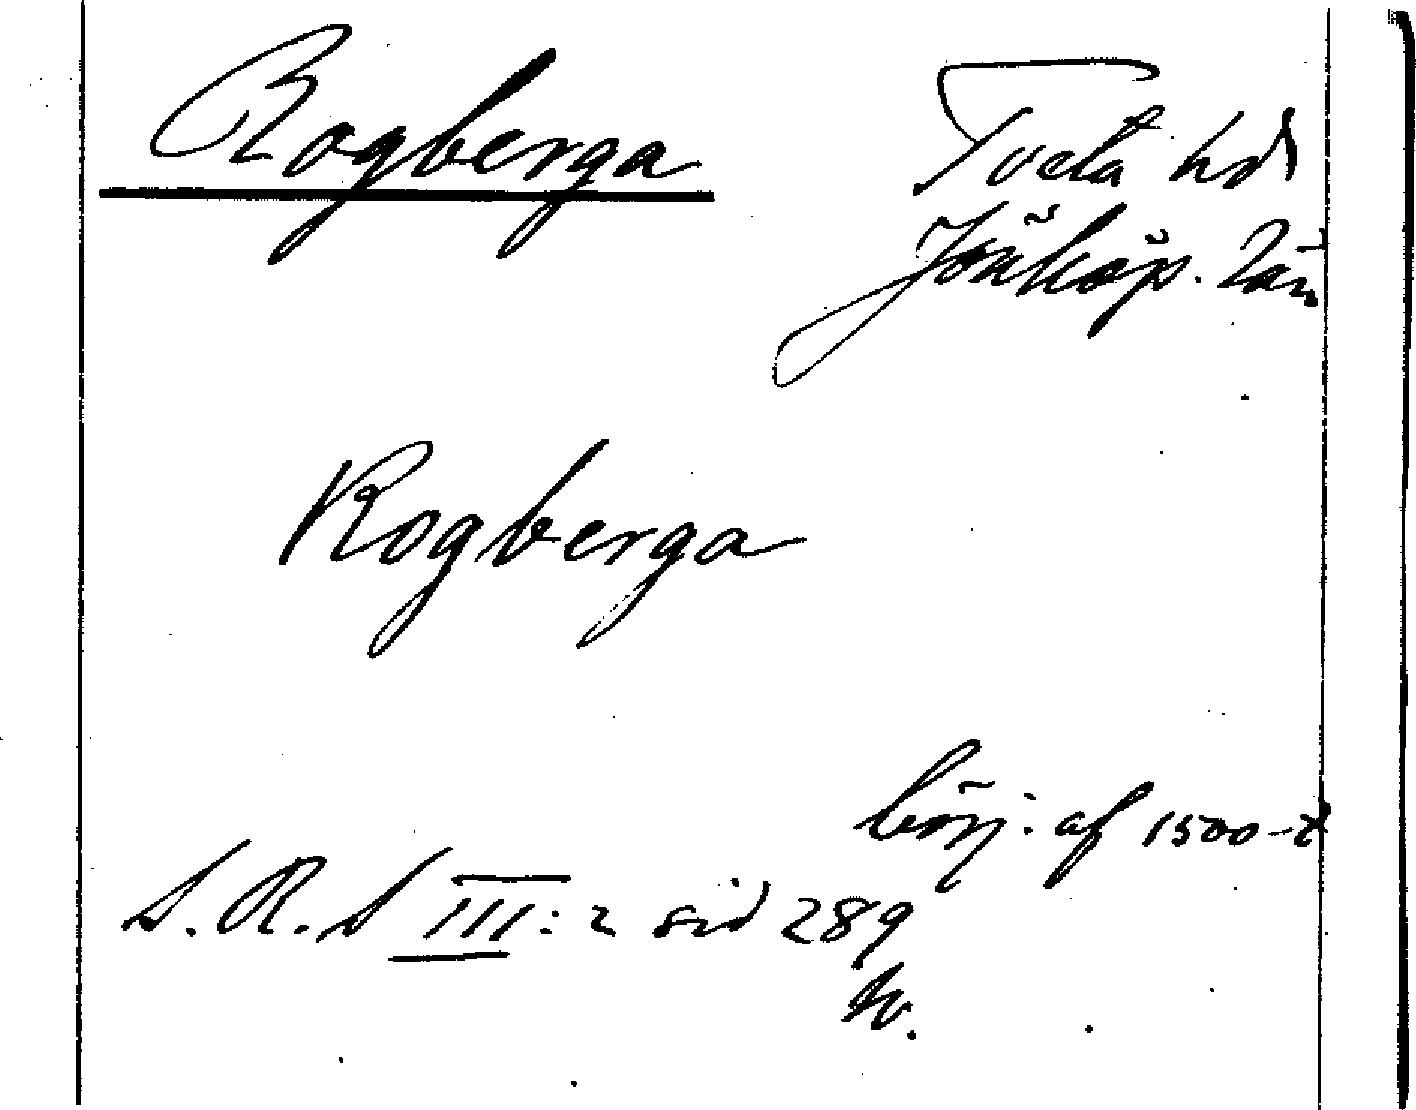 Rogberga
Tveta hd
Jönköp. län
Rogberga
börj. af 1500-t
S.R.S III:2 sid 289